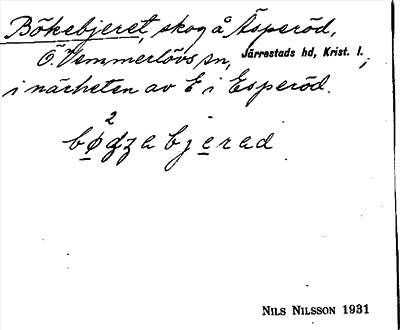 Bökebjeret, skog å Äsperöd,
Ö. Vemmerlövs sn, Järrestads hd, Krist. l.;
i närheten av E i Esperöd.
2
bøgzabjerad
NILS NILSSON 1931